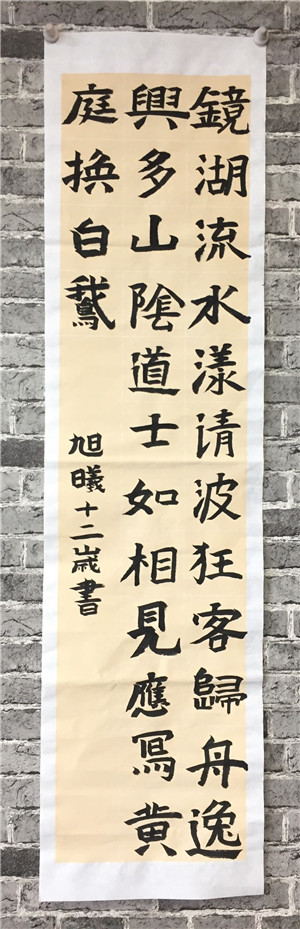 鏡湖流水漾请波狂客歸舟逸
興多山陰道士如相見應冩黄
庭换白鵞
旭曦十二歲書